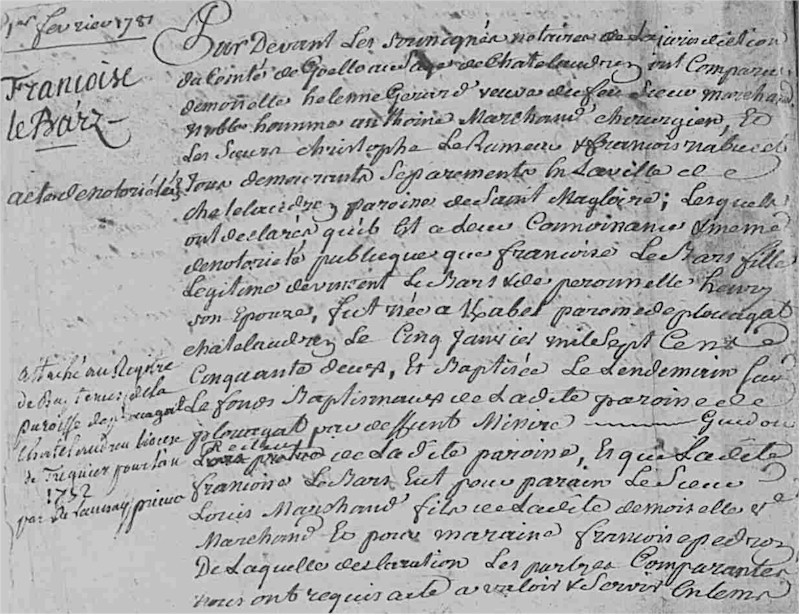 1er fevrier 1781
Francoise
le Barz
acte de notoriété
attaché au Registre
de Baptemes de la
paroisse de plouagat
Chatelaudren diocese
de Treguier pour l'an
1752
par de Launay prieur
Par Devant Les Soussignés notaires de La jurisdiction
du Comté de Goello au Siege de Chatelaudren, ont Comparu
demoiselle helenne Gerard veuve du feu Sieur marchand
noble homme anthoine Marchand chirurgien, Et
Les Sieurs christophe Le Rumeur & francois nabucet
tous demeurants Separements En La ville de
chatelaudren paroisse de Saint Magloire; Lesquels
ont declarés qu'ils Est a deux Connoisance & meme
de notorieté publicque que francoise Le Bars fille
Legitime de vincent Le Bars & de peronnelle henry
son Epouze, fut née a paroisse de plouagat
chatelaudren Le Cinq Janvier mil Sept Cent
Cinquante deux, Et Baptisée Le Lendemain Sur
Le fonds Baptismaux de La dite paroisse de
plouagat par deffunt Missire Guidou
Recteur
de La dite paroisse, Et que La dite
francoise Le Bars Eut pour parain Le Sieur
Louis Marchand fils de La dite demoiselle ve
Marchand Et pour maraine francoise pedron
De Laquelle declaration Les partyes Comparantes
nous ont requis acte a valoir & Servir En tems